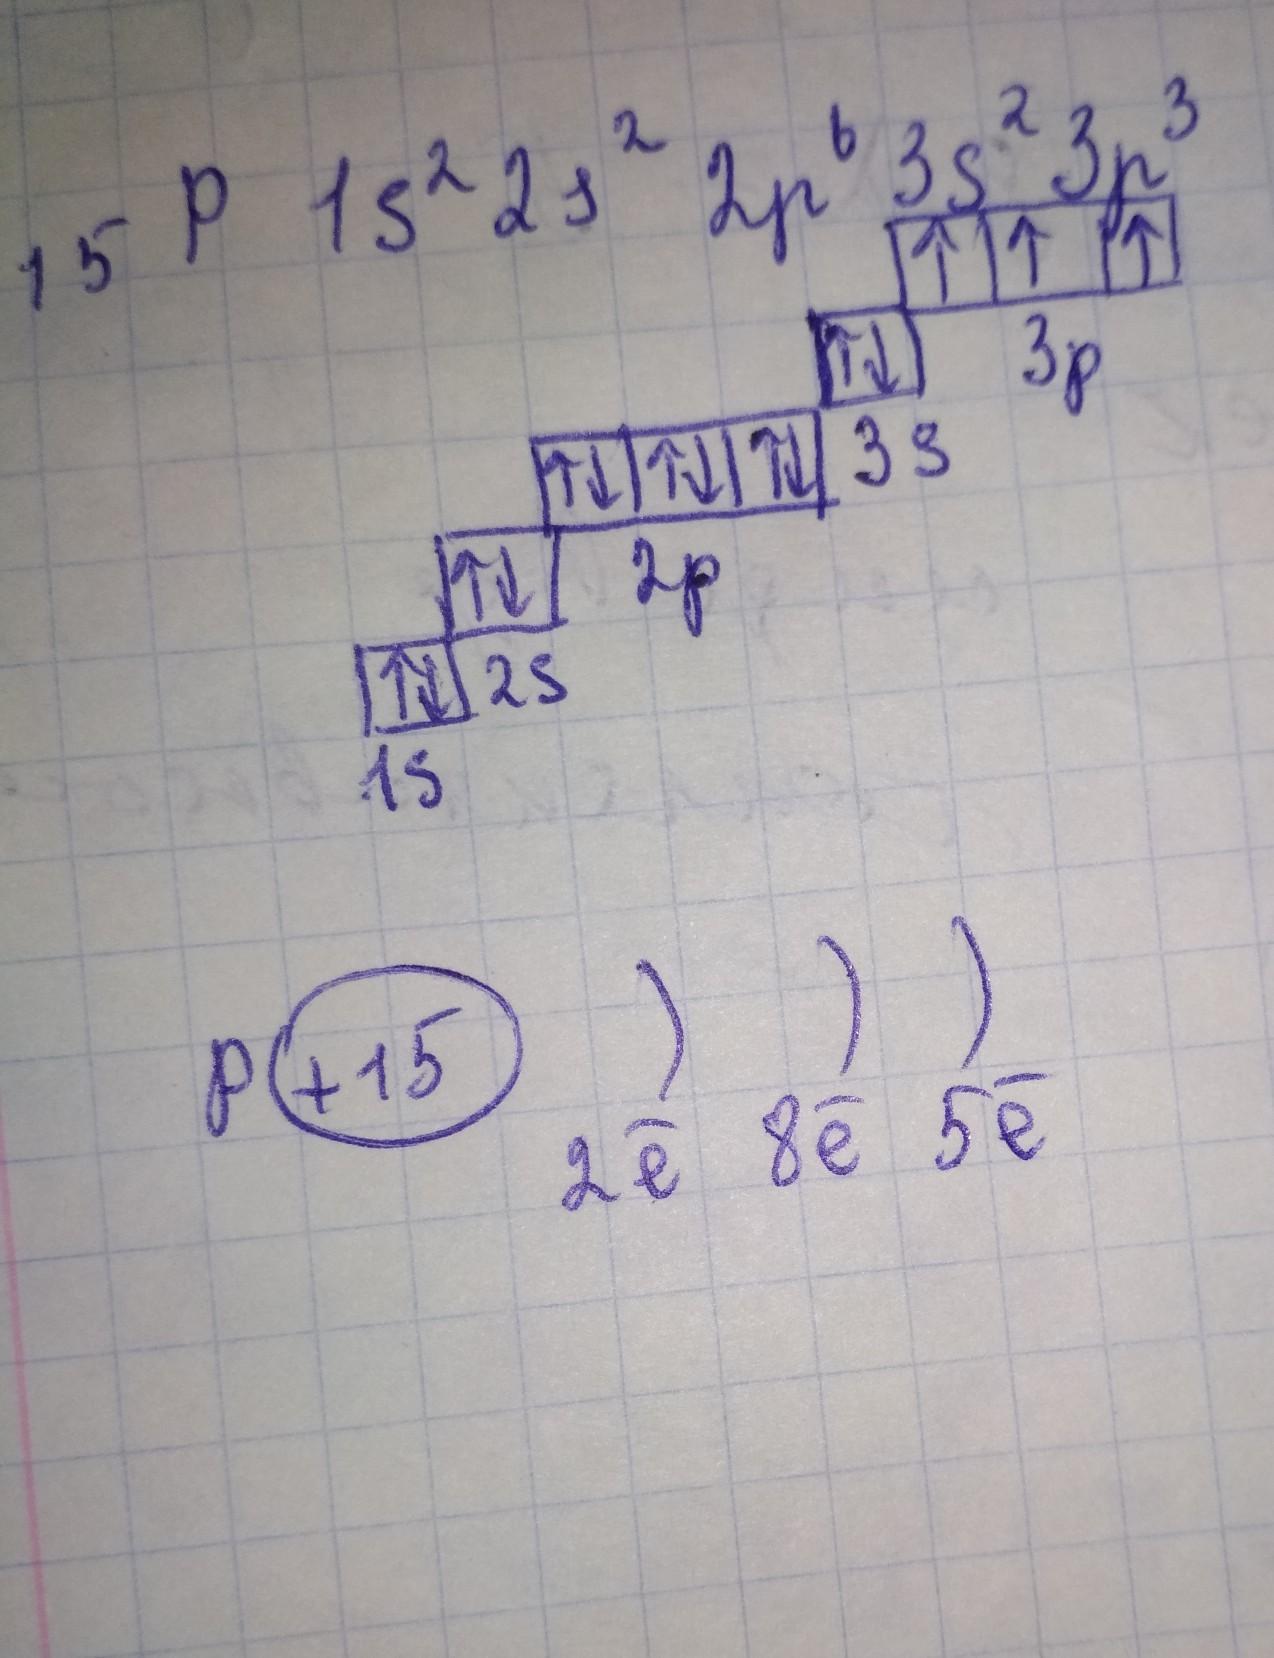 15 P 1s² 2s² 2p⁶ 3s² 3p³
↑ ↑ ↑
↑↓ 3p
↑↓ ↑↓ ↑↓ 3s
↑↓ 2p
↑↓ 2s
1s
P +15 ) ) )
2ē 8ē 5ē